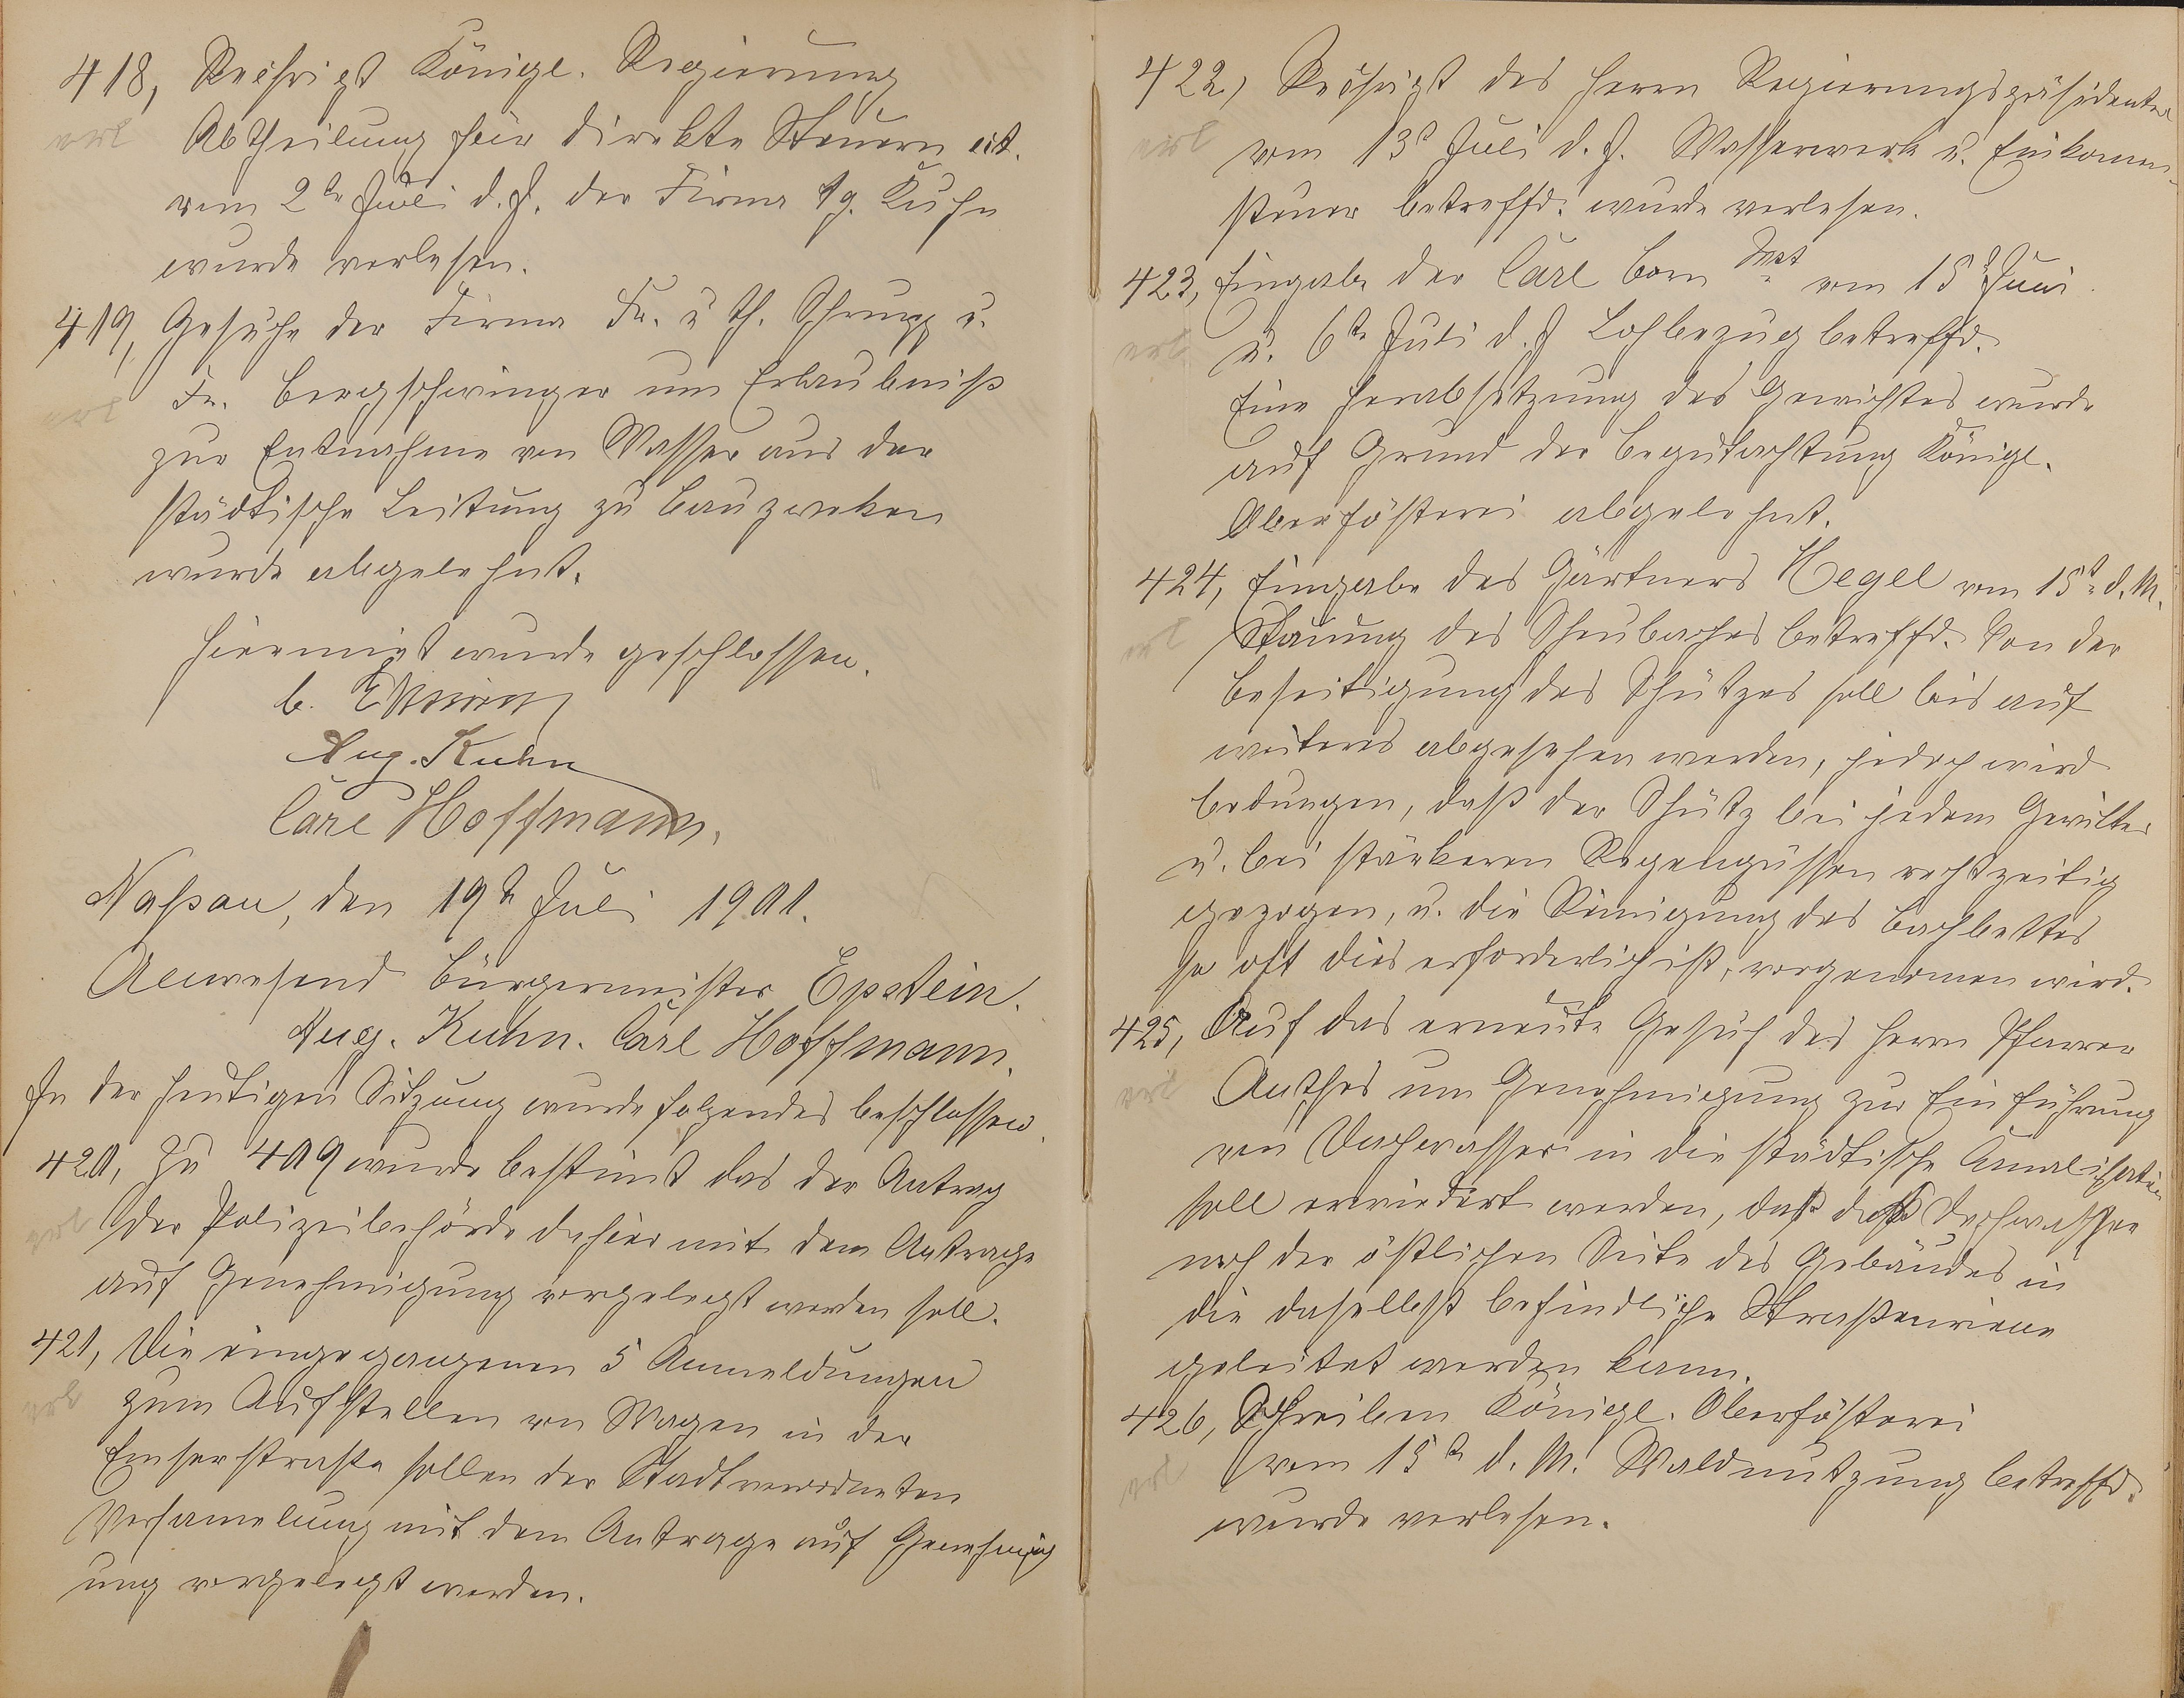 418, Rescript Königl. Regierung
erl Abtheilung für direkte Steuern
vom 2ten Juli d. J. der Firma Ag. Kuhn
wurde verlesen.
419, Gesuche der Firma Fr. u Th. Schrupp u.
erl Fr. Bergschwinger um Erlaubniß
zur Entnahme von Wasser aus der
städtische Leitung zu Bauzweken
wurde abgelehnt.
Hiermit wurde geschlossen.
Aug. Kuhn
Carl Hoffmann.
Naßau, den 19t Juli 1901.
Anwesend Bürgermeister Epstein.
Aug. Kuhn. Carl Hoffmann.
In der heutigen Sitzung wurde folgendes beschlossen.
420, Zu 409 wurde bestimt das der Antrag
erl der Polizeibehörde dahier mit dem Antrage
auf Genehmigung vorgelegt werden soll.
421, Die eingegangenen 5 Anmeldungen
erl zum Aufstellen von Wagen in der
Emserstraße sollen der Stadtverordneten
Versamelung mit dem Antrage auf Genehmig
ung vorgelegt werden.
422, Rescript des Herrn Regierungspräsidenten
erl vom 13t Juli d. J. Wasserwerk u. Einkomm-
steuer betreffd. wurde verlesen.
423, Eingabe der Carl Born Wwt vom 15t Juni
erl u. 6te Juli d. J Lohbezug betreffd.
Eine Herabsetzung des Gewichtes wurde
auf Grund der Begutachtung Königl.
Oberförsterei abgelehnt.
424, Eingabe des Gärtners Hegel vom 15t d. M.
erl Stauung des Scheubaches betreffd. Von der
Beseitigung des Schützes soll bis auf
weiteres abgesehen werden, jedoch wird
bedungen, daß der Schütz bei jedem Gewitter
u. bei stärkeren Regengüssen rechtzeitig
gezogen, u. die Reinigung des Bachbettes
so oft dies erforderlich ist, vorgenomen wird.
425, Auf das erneute Gesuch des Herrn Pfarrer
erl Anthes um Genehmigung zur Einführung
von Dachwasser in die städtische Canalisation
soll erwiedert werden, daß das Dachwasser
nach der östlichen Seite des Gebäudes in
die daselbst befindliche Straßenrinne
geleitet werden kann.
426, Schreiben Königl. Oberförsterei
erl vom 15te d. M. Waldnutzung betreffd.
wurde verlesen.